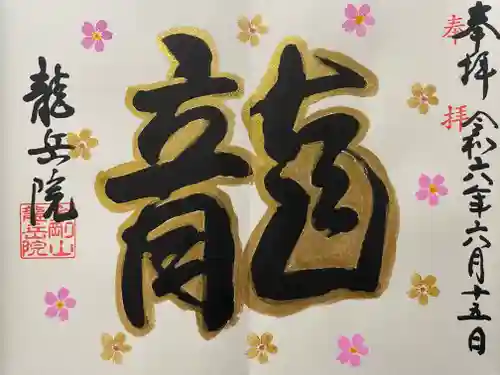 奉拝
奉拝
令和六年六月十五日
龍
龍岳院
金剛山
龍岳院